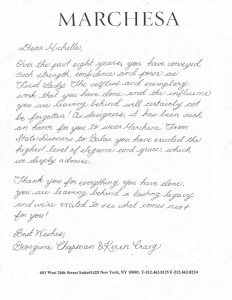 MARCHESA
Dear Michelle,
Over the past eight years, you have conveyed
such strength, confidence and poise as
First Lady. The selfless and exemplary
work that you have done and the influence
you are leaving behind will certainly not
be forgotten! As designers, it has been such
an honor for you to wear Marchesa. From
State dinners to Galas you have exuded the
highest level of elegance and grace, which
we deeply admire.
Thank you for everything you have done,
you are leaving behind a lasting legacy
and we're excited to see what comes next
for you!
Best Wishes,
Georgina Chapman & Keren Craig
601 West 26th Street Suite#1425 New York, NY 10001, T-212.463.8135 F-212.463.0224